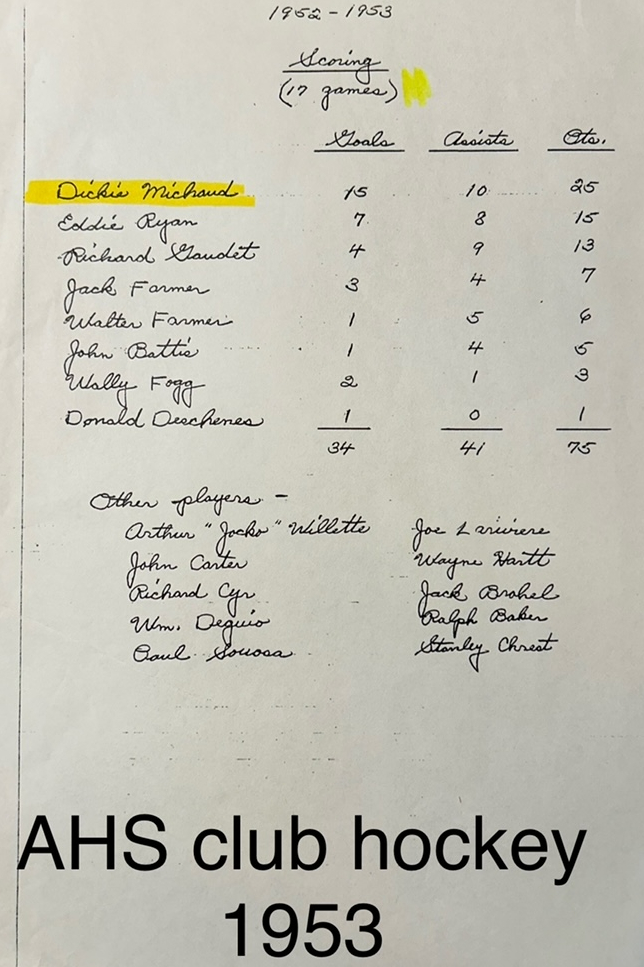 1952-1953
Scoring
(17 games)
Goals Assists Pts.
Dickie Michaud 15 10 25
Eddie Ryan 7 8 15
Richard Gaudet 4 9 13
Jack Farmer 3 4 7
Walter Farmer 1 5 6
John Battis 1 4 5
Wally Fogg 2 1 3
Donald Deschenes 1 0 1
34 41 75
Other players -
Arthur "Jocko" Willette Joe Lariviere
John Carter Wayne Hartt
Richard Cyr Jack Brohel
Wm. Deguio Ralph Baker
Paul Sousa Stanley Chrest
AHS club hockey
1953